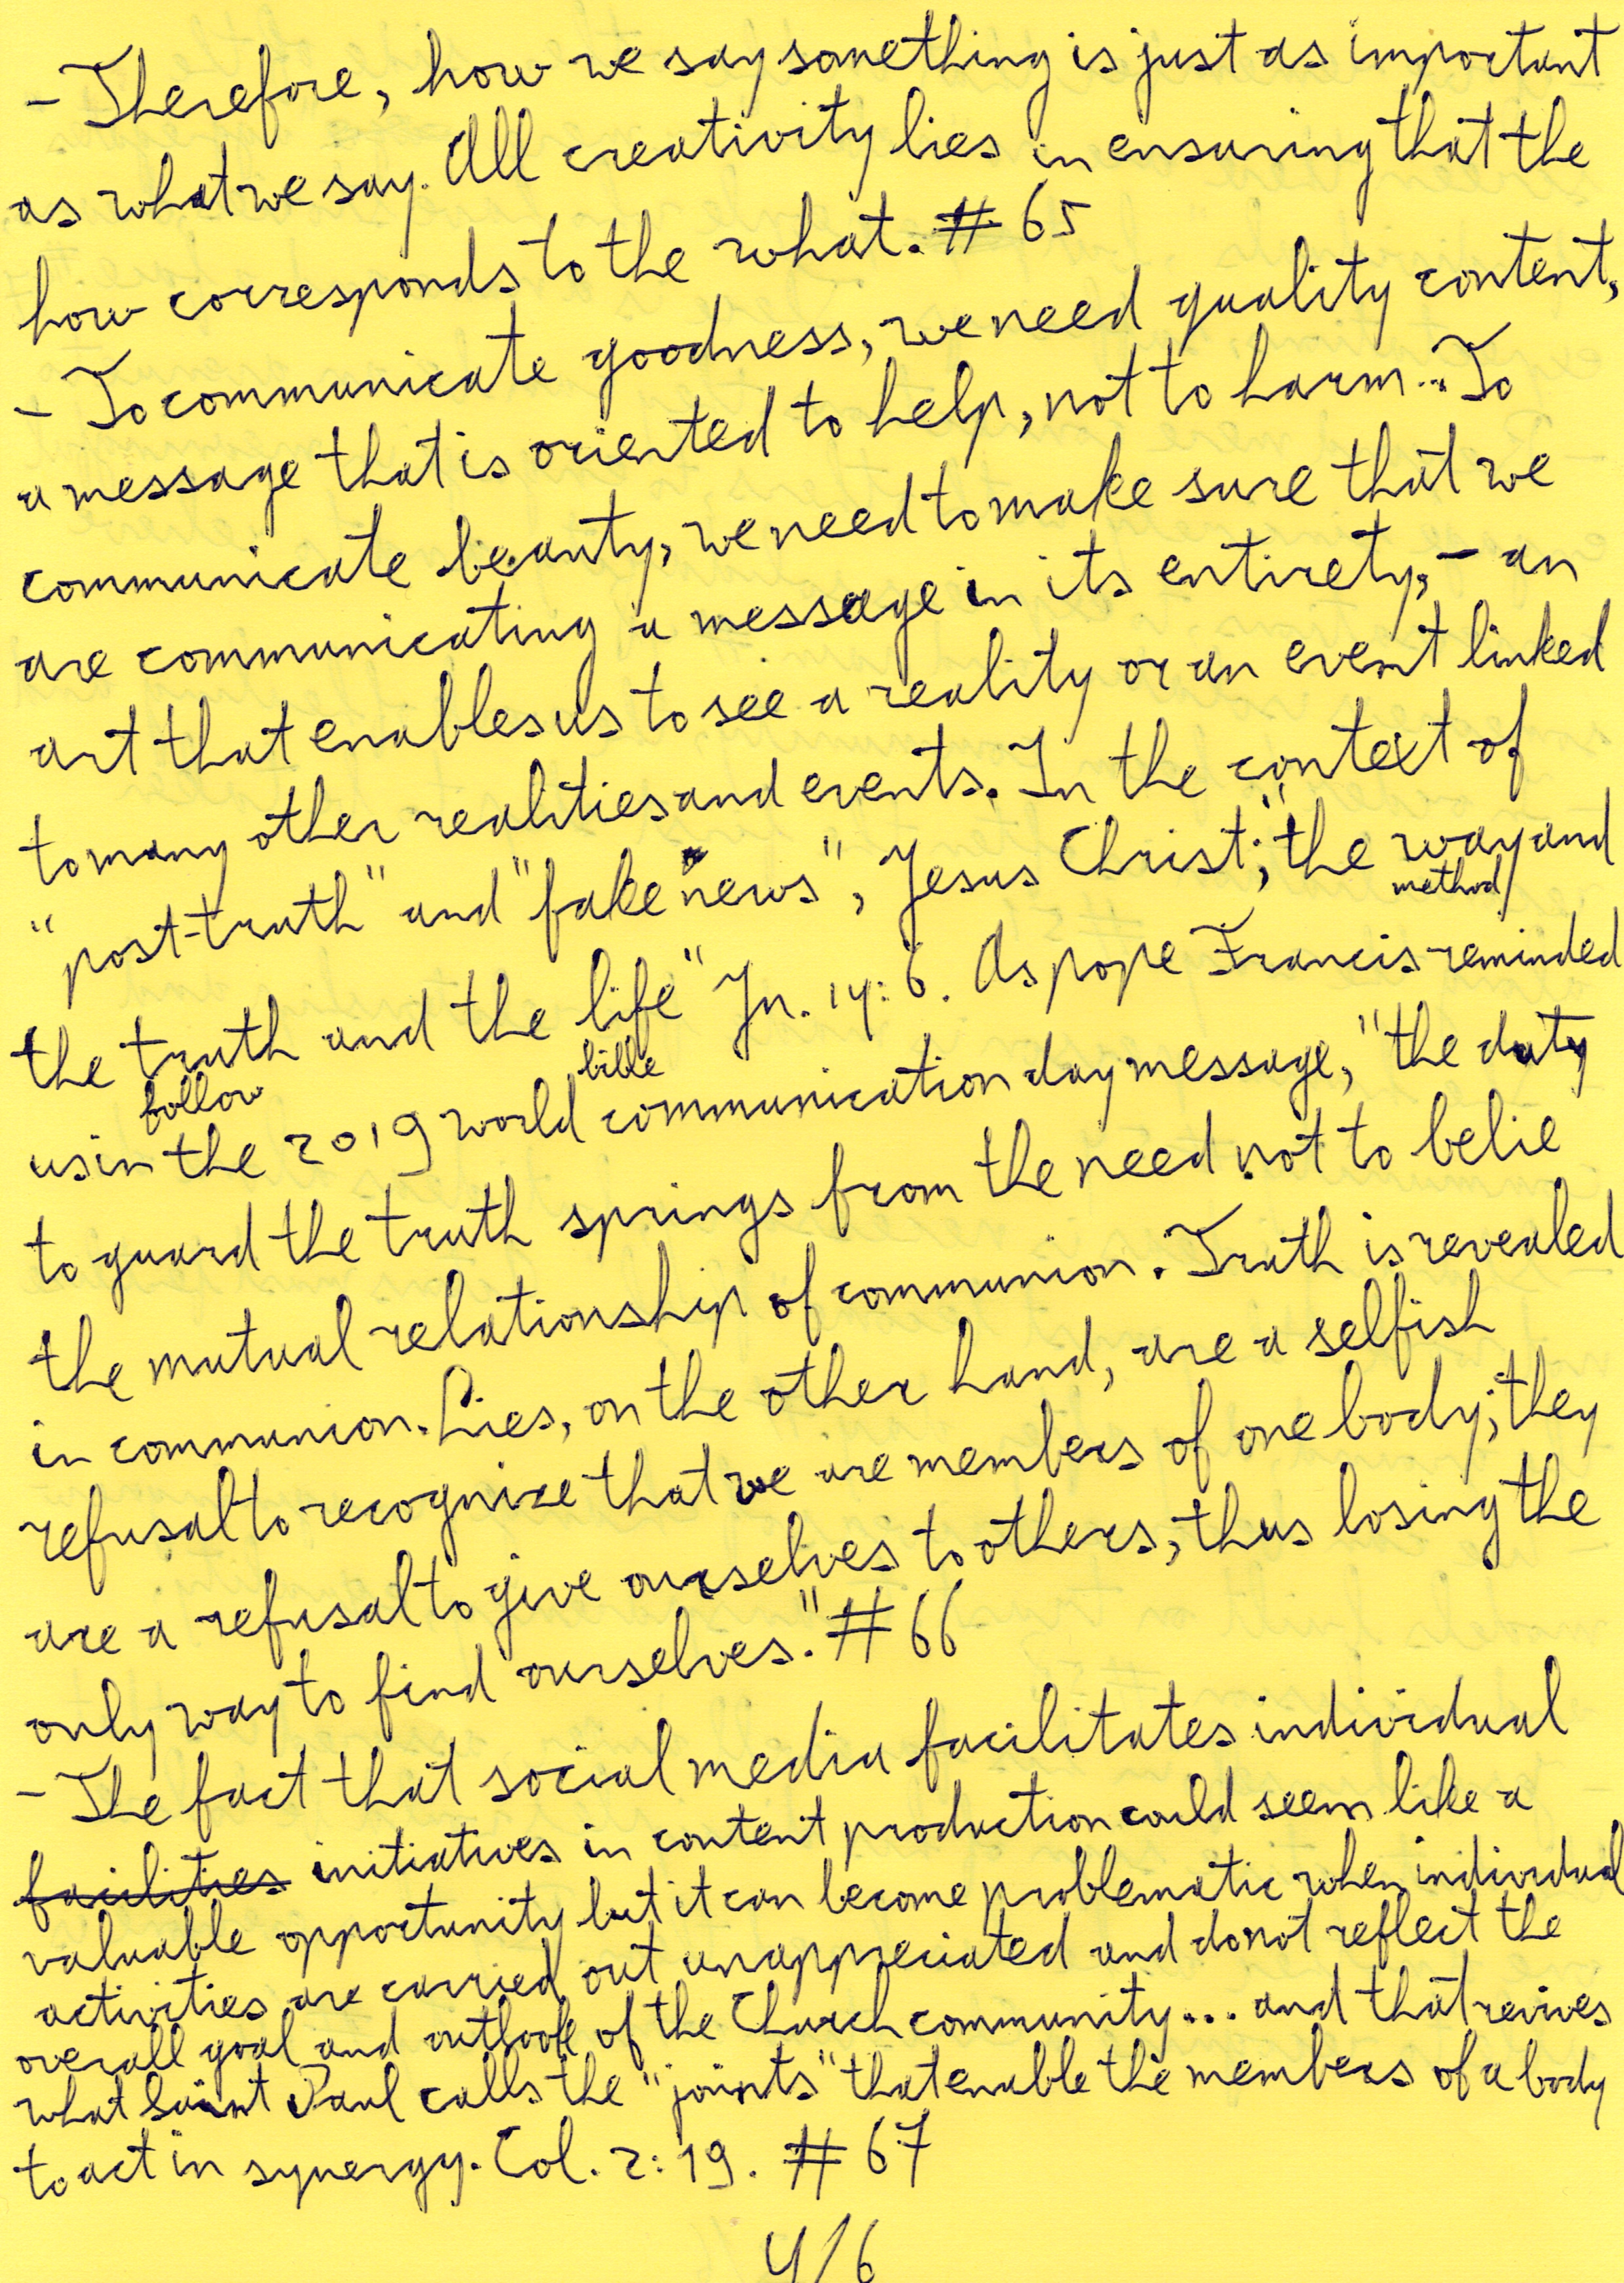 - Therefore, how we say something is just as important
as what we say. All creativity lies in ensuring that the
how corresponds to the what. # 65
- To communicate goodness, we need quality content,
a message that is oriented to help, not to harm... To
communicate beauty, we need to make sure that we
are communicating a message in its entirety, - an
art that enables us to see a reality or an event linked
to many other realities and events. In the context of
"post-truth" and "fake news", Jesus Christ; "the way and
method
the truth and the life" Jn. 14:6. As pope Francis reminded
follow bible
us in the 2019 world communication day message, "the duty
to guard the truth springs from the need not to belie
the mutual relationship of communion. Truth is revealed
in communion. Lies, on the other hand, are a selfish
refusal to recognize that we are members of one body; they
are a refusal to give ourselves to others, thus losing the
only way to find ourselves." # 66
- The fact that social media facilitates individual
facilities initiatives in content production could seem like a
valuable opportunity but it can become problematic when individual
activities are carried out unappreciated and do not reflect the
overall goal and outlook of the Church community... and that revives
what Saint Paul calls the "joints" that enable the members of a body
to act in synergy. Col. 2:19. # 67
4/6